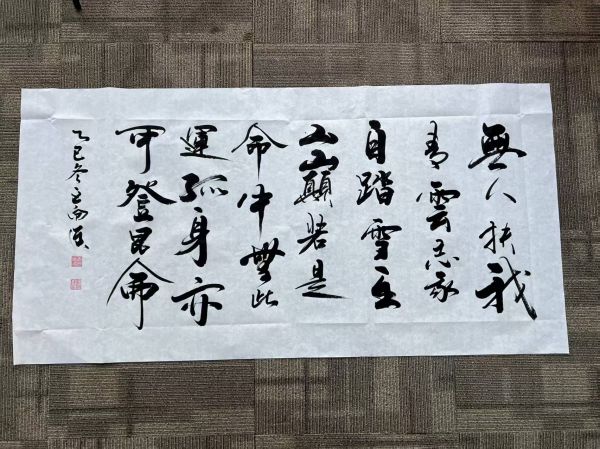 無人扶我
青雲志我
自踏雪至
山巔若是
命中無此
運孤身亦
可登昆侖
乙巳冬